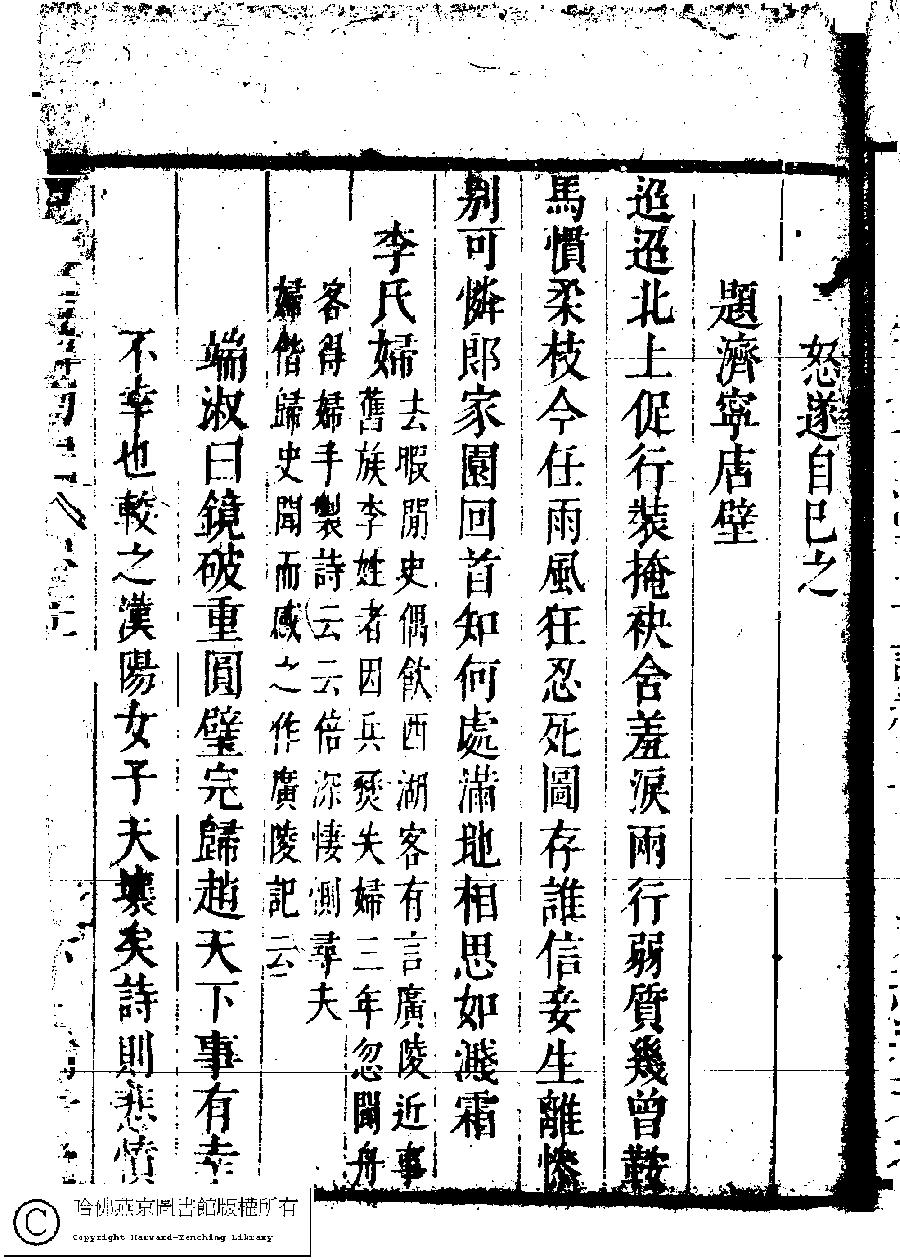 怒遂自巳之
題濟寧店壁
迢迢北上促行裝掩袂含羞淚兩行弱質幾曾鞍
馬慣柔枝今任雨風狂忍死圖存誰信妾生離慘
别可憐郎家園回首知何處滿地相思如濺霜
李氏婦
去暇閒史偶飲西湖客有言廣陵近事
舊族李姓者因兵燹失婦三年忽聞舟
客得婦手製詩云云倍深悽惻尋夫
婦偕歸史聞而感之作廣陵記云
端淑曰鏡破重圓璧完歸趙天下事有幸
不幸也較之漢陽女子天壤矣詩則悲憤
哈佛燕京圖書館版權所有
Copyright Harvard-Yenching Library